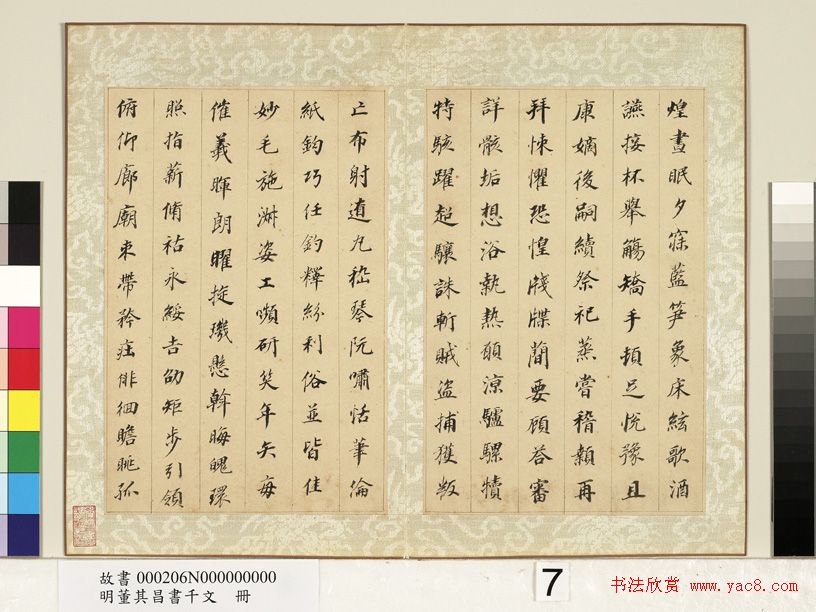 煌晝眠夕寐藍笋象床絃歌酒
讌接杯舉觴矯手頓足悅豫且
康嫡後嗣續祭祀蒸嘗稽顙再
拜悚懼恐惶牋牒簡要顧荅審
詳骸垢想浴執熱願涼驢騾犢
特駭躍超驤誅斬賊盜捕獲叛
亡布射遼丸嵇琴阮嘯恬筆倫
紙鈞巧任釣釋紛利俗並皆佳
妙毛施淑姿工嚬研笑年矢每
催羲暉朗曜旋璣懸斡晦魄環
照指薪脩祜永綏吉劭矩步引領
俯仰廊廟束帶矜莊徘徊瞻眺孤
故書 000206N000000000
明董其昌書千文 冊
7
书法欣赏 www.yac8.com